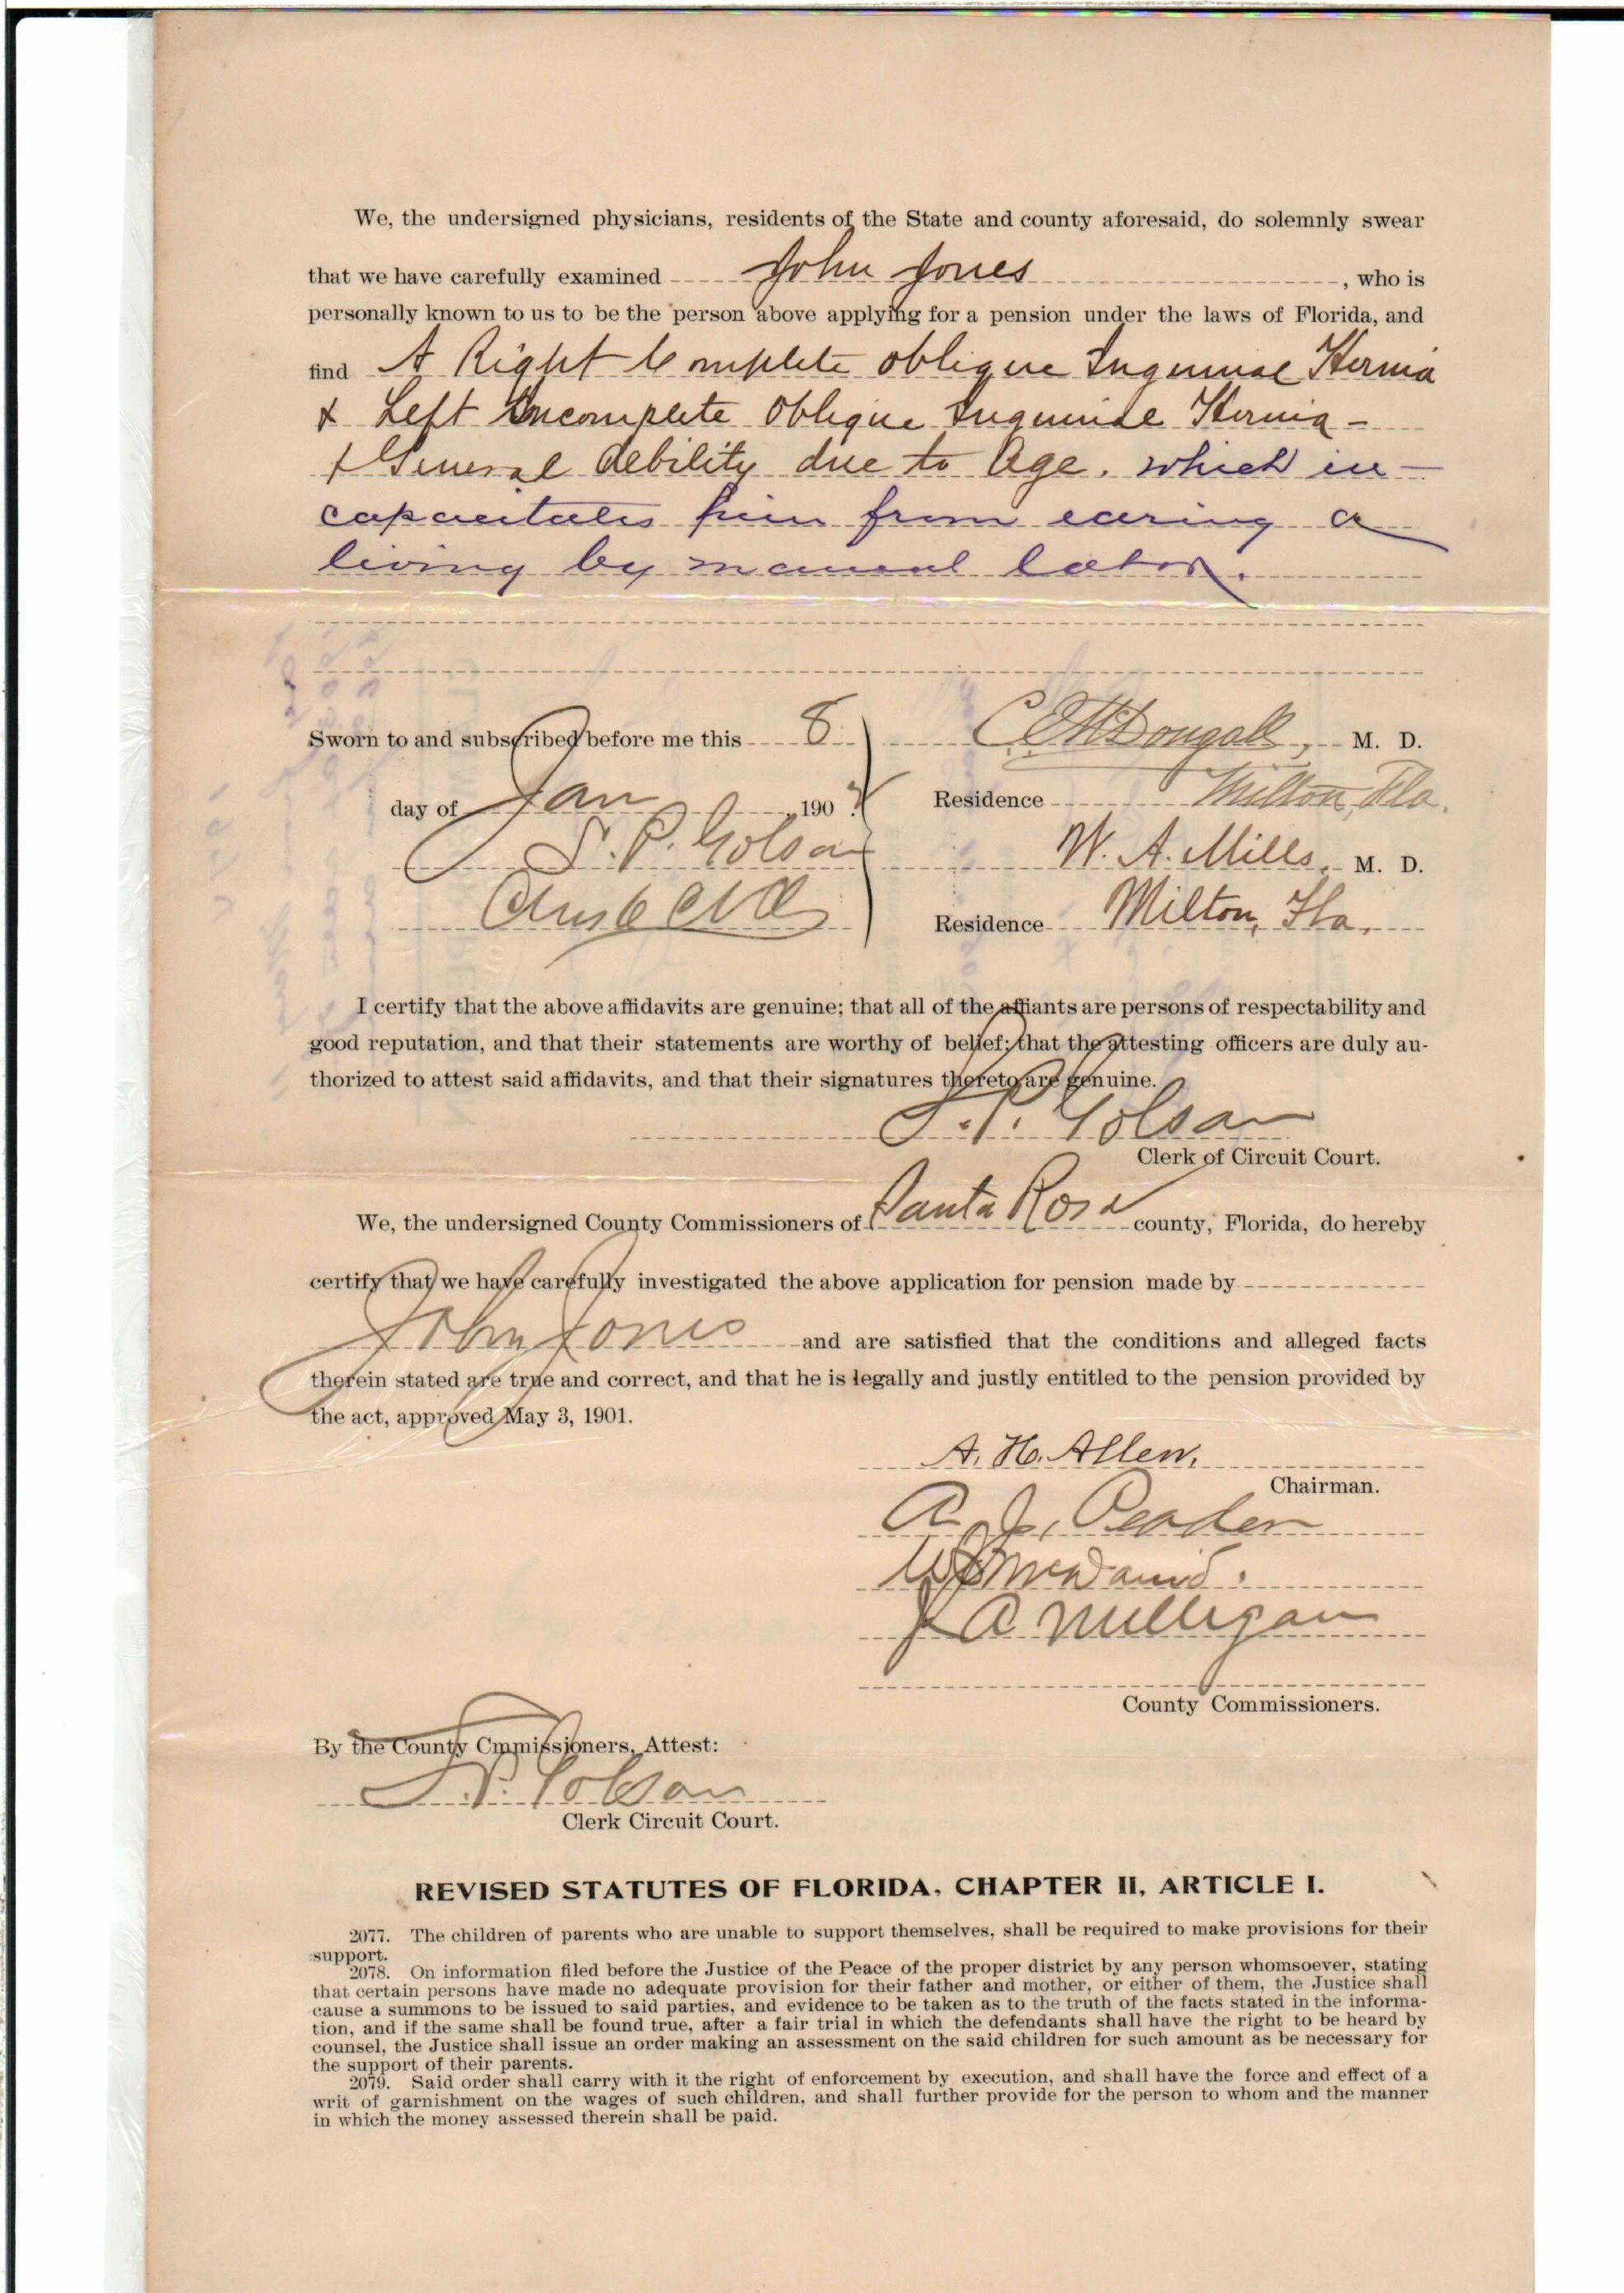 We, the undersigned physicians, residents of the State and county aforesaid, do solemnly swear
that we have carefully examined John Jones, who is
personally known to us to be the person above applying for a pension under the laws of Florida, and
find A Right Complete oblique Inguinal Hernia
& Left Incomplete Oblique Inguinal Hernia -
& General debility due to Age. which in-
capacitates him from earing a
living by manual labor.
Sworn to and subscribed before me this 8
C. E. McDougall, M. D.
day of Jan, 190
Residence Milton, Fla.
S. P. Golson
W. A. Mills, M. D.
Residence Milton, Fla.
I certify that the above affidavits are genuine; that all of the affiants are persons of respectability and
good reputation, and that their statements are worthy of belief; that the attesting officers are duly au-
thorized to attest said affidavits, and that their signatures thereto are genuine.
S. P. Golson
Clerk of Circuit Court.
We, the undersigned County Commissioners of Santa Rosa county, Florida, do hereby
certify that we have carefully investigated the above application for pension made by
John Jones and are satisfied that the conditions and alleged facts
therein stated are true and correct, and that he is legally and justly entitled to the pension provided by
the act, approved May 3, 1901.
A. H. Allen,
Chairman.
A. J. Peaden
McDavid.
J A Milligan
County Commissioners.
By the County Cmmissioners, Attest:
S. P. Golson
Clerk Circuit Court.
REVISED STATUTES OF FLORIDA, CHAPTER II, ARTICLE I.
2077. The children of parents who are unable to support themselves, shall be required to make provisions for their
support.
2078. On information filed before the Justice of the Peace of the proper district by any person whomsoever, stating
that certain persons have made no adequate provision for their father and mother, or either of them, the Justice shall
cause a summons to be issued to said parties, and evidence to be taken as to the truth of the facts stated in the informa-
tion, and if the same shall be found true, after a fair trial in which the defendants shall have the right to be heard by
counsel, the Justice shall issue an order making an assessment on the said children for such amount as be necessary for
the support of their parents.
2079. Said order shall carry with it the right of enforcement by execution, and shall have the force and effect of a
writ of garnishment on the wages of such children, and shall further provide for the person to whom and the manner
in which the money assessed therein shall be paid.